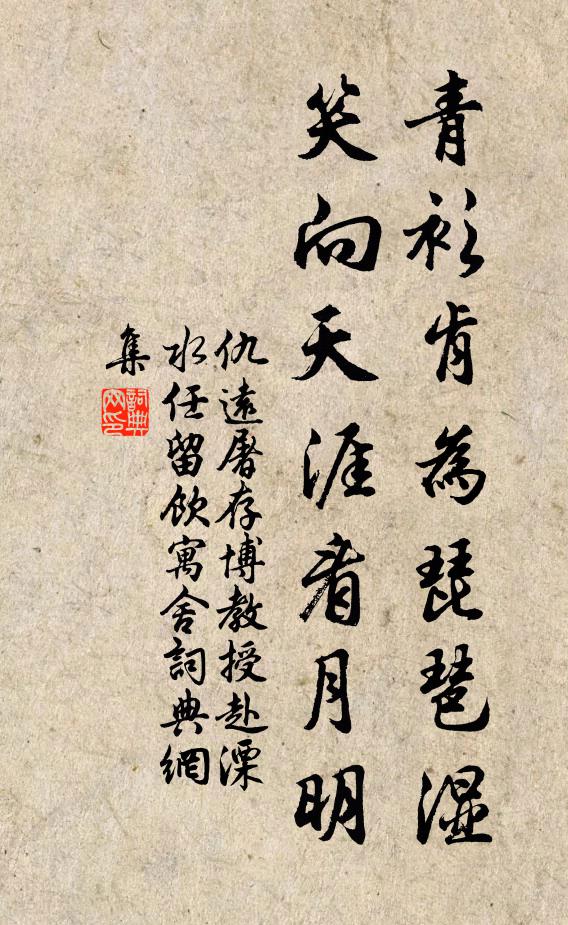 青衫肯為琵琶濕
笑向天涯看月明
仇遠屠存博教授赴溧
水任留飲寓舍詞典網
集
詞典
网印